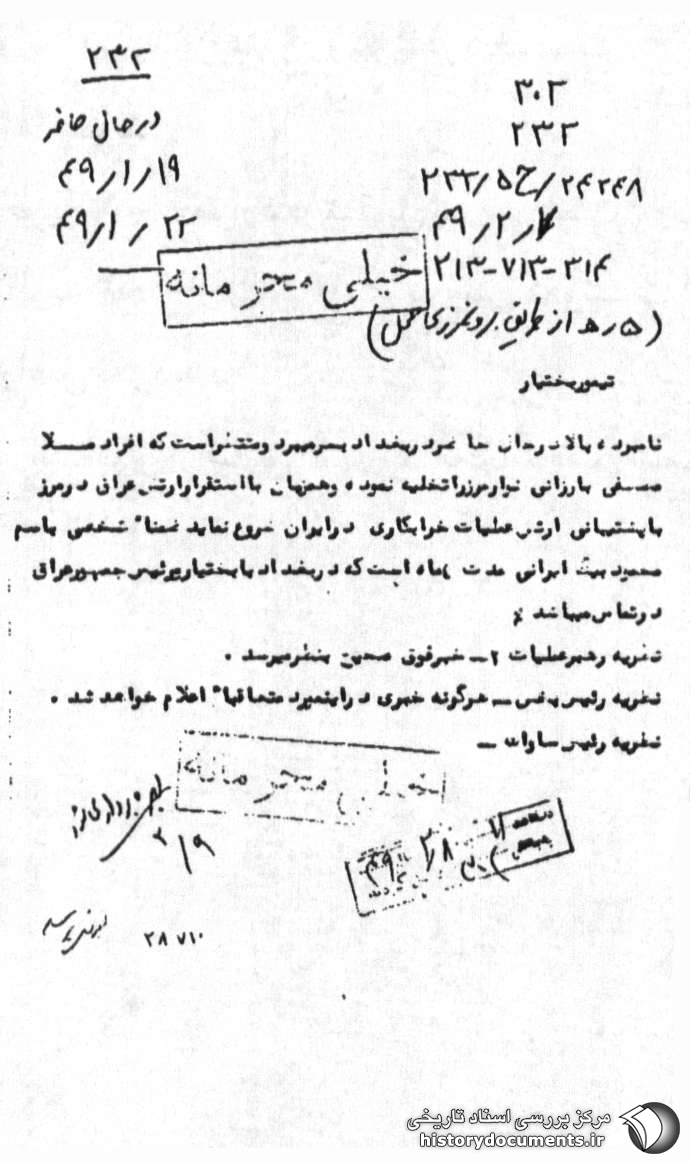 ۲۳۲
درحال حاضر
۴۹/۱/۱۹
۴۹/۱/۲۳
۳۰۲
۲۳۲
۲۳۳/۵ح/۲۴۲۴۸
۴۹/۲/
۲۱۳-۷۱۳-۳۱۴
خیلی محرمانه
(۵ره از طریق مرزی محل)
تیموربختیار
نامبرده بالا درحال حاضر دربغداد بسرمیبرد ومنتظراست که افراد ملا
مصطفی بارزانی نوارمرزراتخلیه نموده وهمزمان بااستقرارارتش عراق درمرز
باپشتیبانی ارتش عملیات خرابکاری درایران شروع نماید ضمنا" شخصی باسم
محمود ایرانی مدت ماه است که دربغداد بابختیارورئیس جمهورعراق
درتماس میباشد
نظریه رهبرعملیات ۲ـ خبرفوق صحیح بنظرمیرسد .
نظریه رئیس بخش ـ هرگونه خبری دراینمورد متعاقبا" اعلام خواهد شد .
نظریه رئیس ساواک ـ
خیلی محرمانه
۲/۹
۴۹ ۲/۸
۲۸۷۱۰
مرکز بررسی اسناد تاریخی
historydocuments.ir